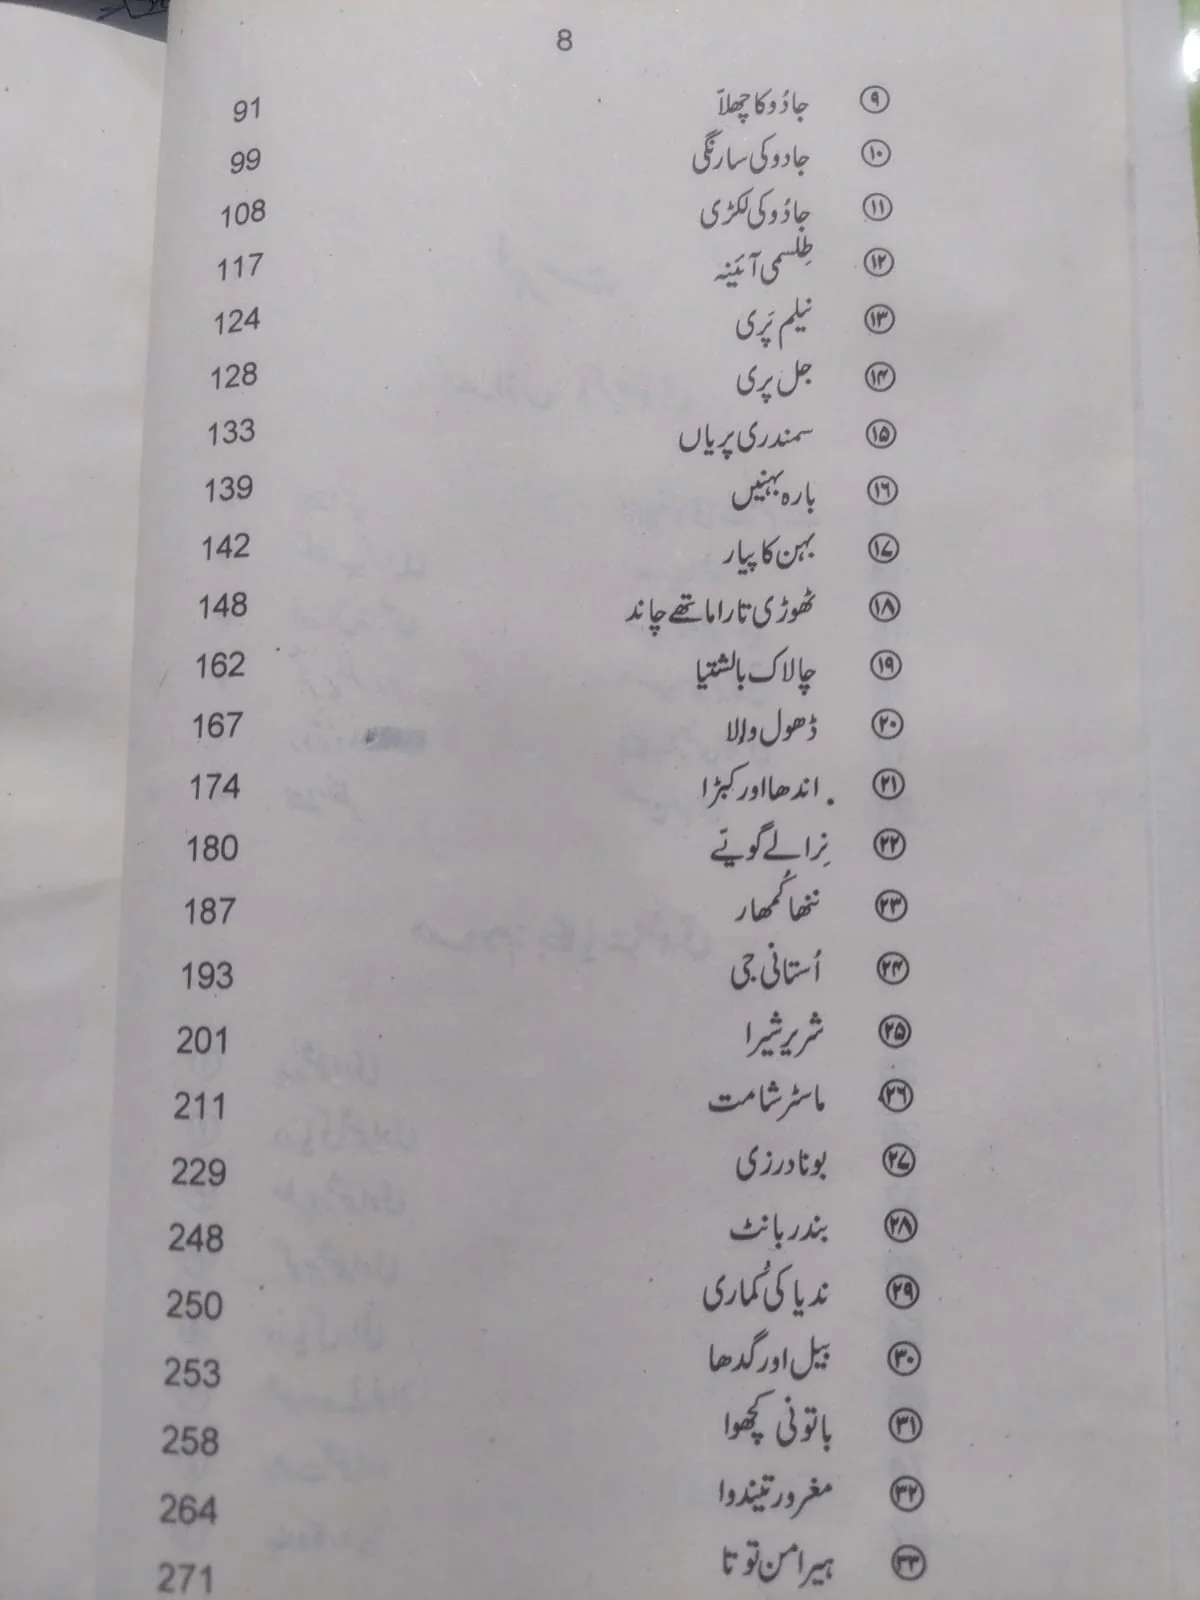 8
۹ جادُو کا چھلاّ 91
۱۰ جادو کی سارنگی 99
۱۱ جادُو کی لکڑی 108
۱۲ طِلسمی آئینہ 117
۱۳ نیلم پَری 124
۱۴ جل پری 128
۱۵ سمندری پریاں 133
۱۶ بارہ بہنیں 139
۱۷ بہن کا پیار 142
۱۸ ٹھوڑی تارا ماتھے چاند 148
۱۹ چالاک بالشتیا 162
۲۰ ڈھول والا 167
۲۱ اندھا اور کبڑا 174
۲۲ نِرالے گویّے 180
۲۳ ننھا کُمھار 187
۲۴ اُستانی جی 193
۲۵ شریر شیرا 201
۲۶ ماسٹر شامت 211
۲۷ بونا درزی 229
۲۸ بندر بانٹ 248
۲۹ ندیا کی کُماری 250
۳۰ بیل اور گدھا 253
۳۱ باتونی کچھوا 258
۳۲ مغرور تیندوا 264
۳۳ ہیرامن توتا 271